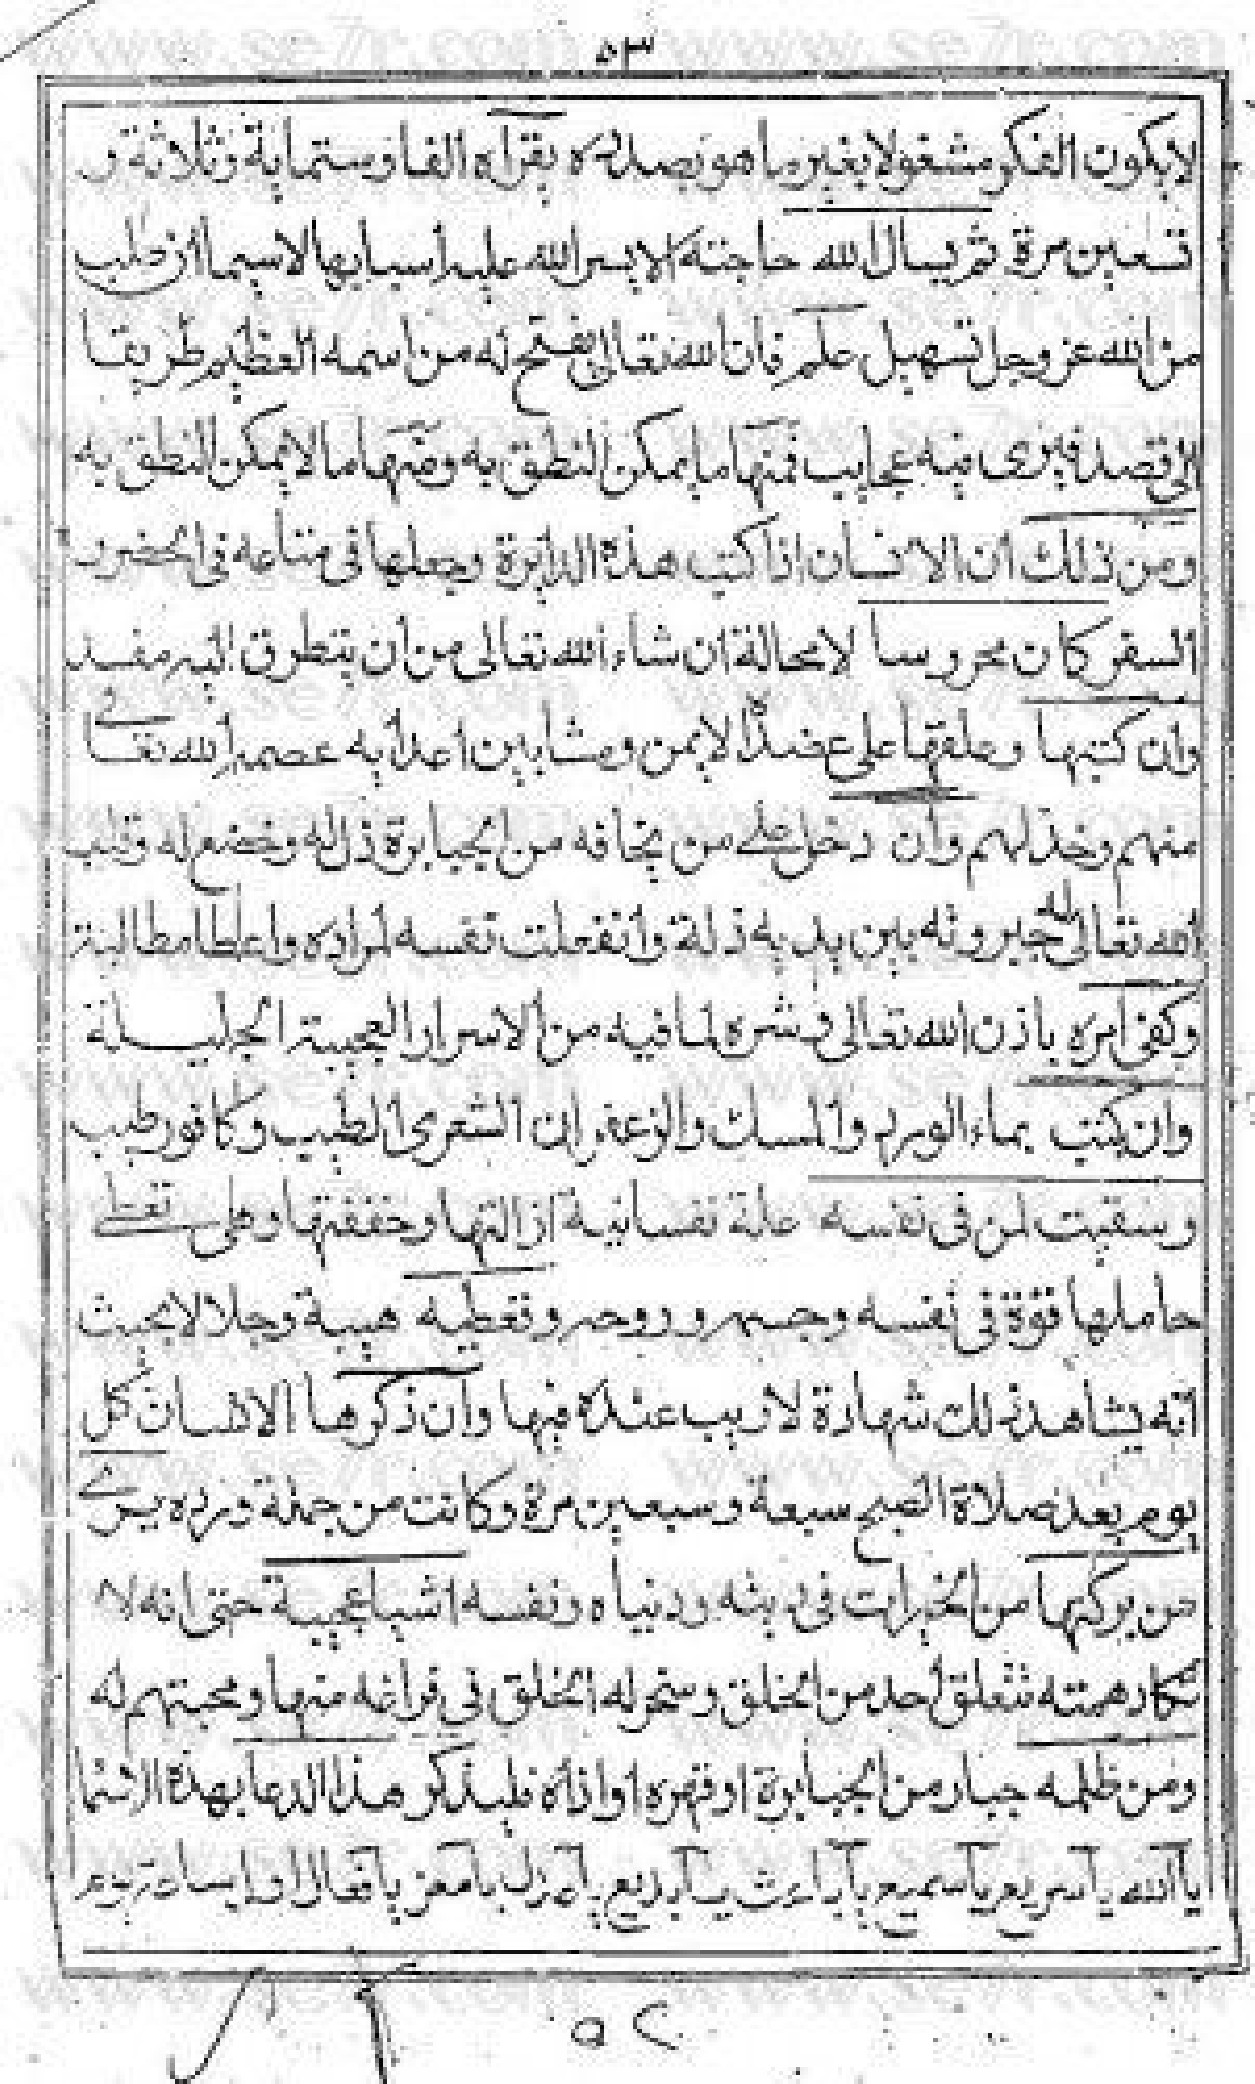 ٥٣
لا يكون الفكر مشغولا بغير ما هو بصدده يقرأه الفا وستماية وثلاثة و
تسعين مرة ثم يسال الله حاجته الا يسر الله عليه اسبابها لاسيما ان طلب
من الله عز وجل تسهيل علم فان الله تعالى يفتح له من اسمه العظيم طريقا
الى قصده فيرى منه عجايب فمنها ما يمكن النطق به ومنها ما لا يمكن النطق به
ومن ذلك ان الانسان اذا كتب هذه الدايرة وجعلها في متاعه في الحضر و
السفر كان محروسا لا محالة ان شاء الله تعالى من ان يتطرق اليه مفسد
وان كتبها وعلقها على عضده الايمن ومشا بين اعدايه عصمه الله تعالى
منهم وخذلهم وان دخل على من يخافه من الجبابرة ذل له وخضع له وقلب
الله تعالى له جبروته بين يديه ذلة وانفعلت نفسه لمراده واعطا مطالبة
وكفى امره باذن الله تعالى وشره لما فيه من الاسرار العجيبة الجليلة
وان كتبت بماء الورد والمسك والزعفران الشعرى الطيب وكافور طيب
وسقيت لمن في نفسه علة نفسانية ازالتها وخففتها وهى تعطى
حاملها قوة في نفسه وجسمه وروحه وتعطيه هيبة وجلالا بحيث
انه يشاهد ذلك شهادة لا ريب عنده فيها وان ذكرها الانسان كل
يوم بعد صلاة الصبح سبعة وسبعين مرة وكانت من جملة ورده يرى
من بركتها من الخيرات في دينه ودنياه ونفسه اشيا عجيبة حتى انه لا
تكاد همته تتعلق لحد من الخلق وسخر له الخلق في فراغه منها ومحبتهم له
ومن ظلمه جبار من الجبابرة او قهره او اذاه فليذكر هذا الدعا بهذه الاسما
يا الله يا سريع يا سميع يا باعث يا بديع يا مذل يا معز يا فعال
٥٢